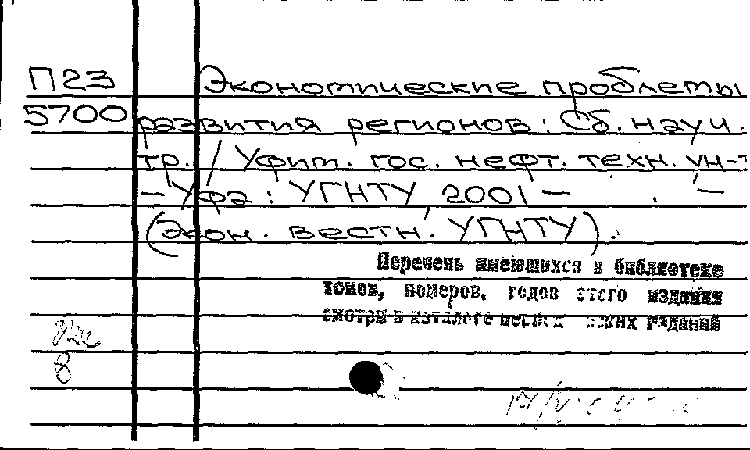 П23 Экономические проблемы
5700 развития регионов: Сб. науч.
тр. / Уфим. гос. нефт. техн. ун-т
– Уфа: УГНТУ, 2001 –      . –
(Экон. вестн. УГНТУ).
Перечень имеющихся в библиотеке
томов, номеров, годов этого издания
смотри в каталоге
8